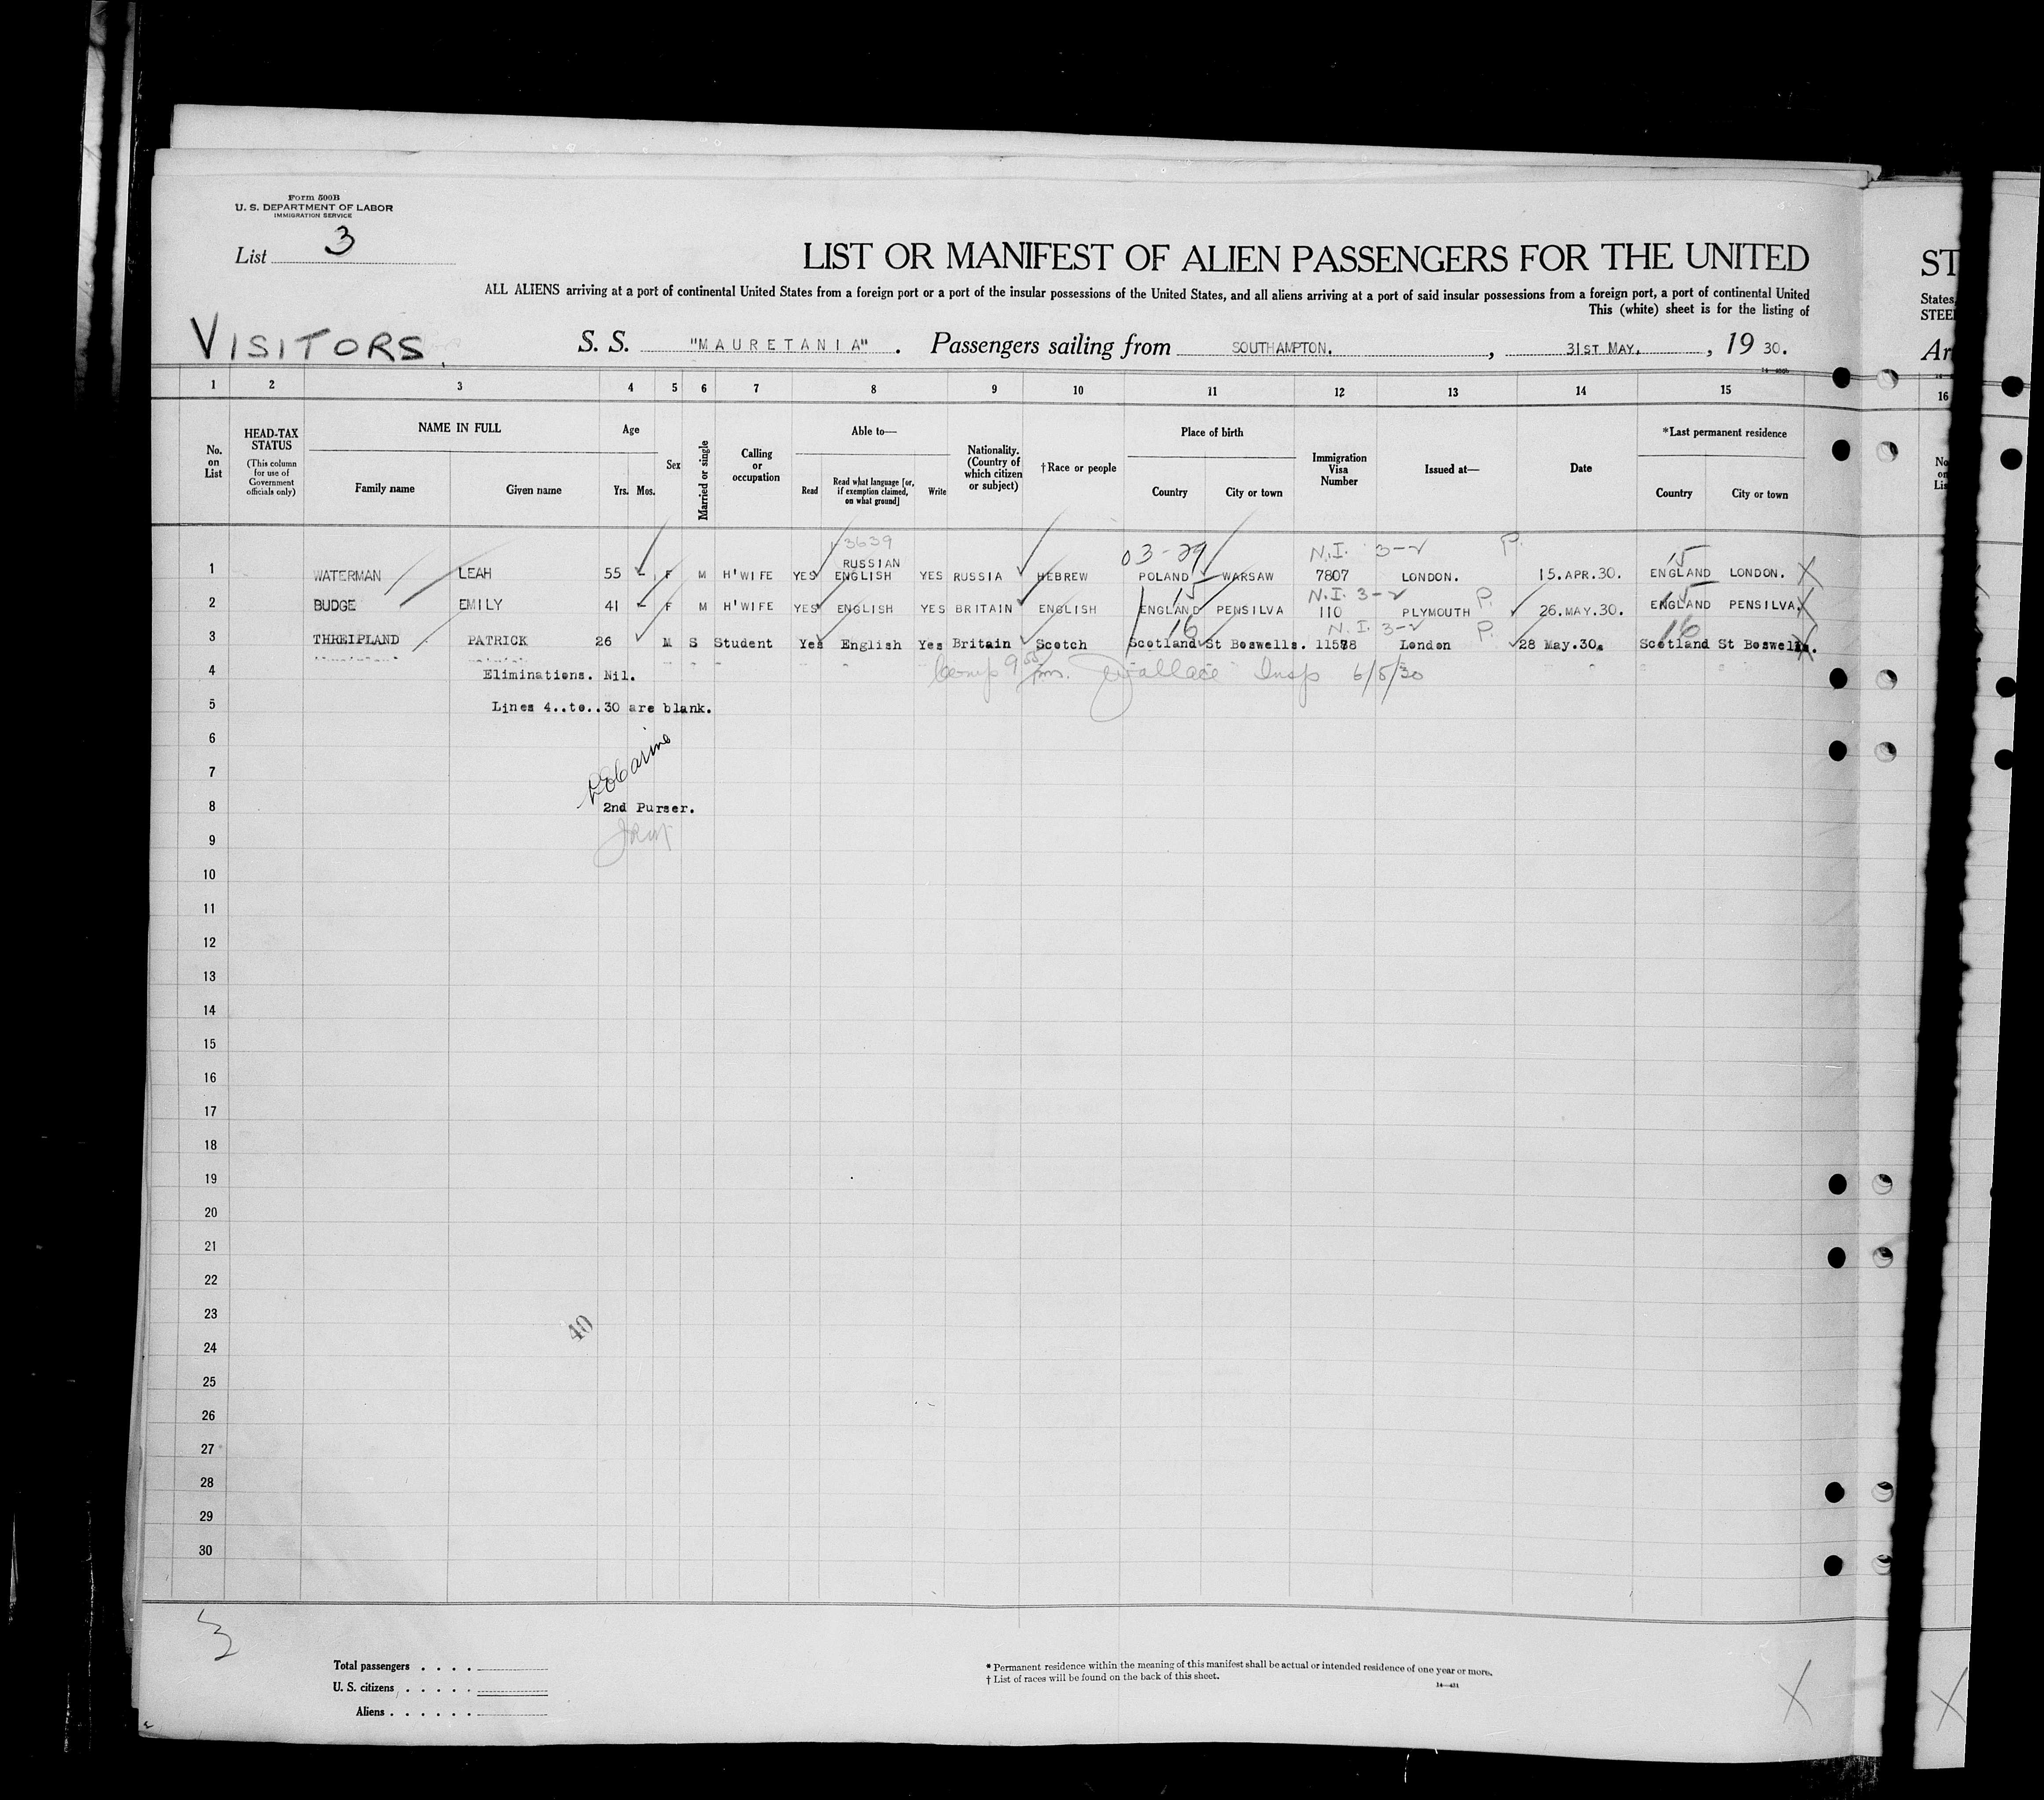 Form 500B
U. S. DEPARTMENT OF LABOR
IMMIGRATION SERVICE
List 3
LIST OR MANIFEST OF ALIEN PASSENGERS FOR THE UNITED
ST
ALL ALIENS arriving at a port of continental United States from a foreign port or a port of the insular possessions of the United States, and all aliens arriving at a port of said insular possessions from a foreign port, a port of continental United
States,
This (white) sheet is for the listing of
VISITORS.
S. S. "MAURETANIA" . Passengers sailing from SOUTHAMPTON. , 31ST MAY. , 19 30.
1 2 3 4 5 6 7 8 9 10 11 12 13 14 15 16
No. on List
HEAD-TAX STATUS
(This column for use of Government officials only)
NAME IN FULL
Family name Given name
Age
Yrs. Mos.
Sex
Married or single
Calling or occupation
Able to—
Read
Read what language [or, if exemption claimed, on what ground]
Write
Nationality. (Country of which citizen or subject)
†Race or people
Place of birth
Country City or town
Immigration Visa Number
Issued at—
Date
*Last permanent residence
Country City or town
3639 03-29 N.I. 3-2 P. 15
RUSSIAN
1 WATERMAN LEAH 55 - F M H'WIFE YES ENGLISH YES RUSSIA HEBREW POLAND WARSAW 7807 LONDON. 15.APR.30. ENGLAND LONDON. X
15 N.I. 3-2 P. 15
2 BUDGE EMILY 41 - F M H'WIFE YES ENGLISH YES BRITAIN ENGLISH ENGLAND PENSILVA 110 PLYMOUTH 26.MAY.30. ENGLAND PENSILVA. X
16 N.I. 3-2 P. 16
3 THREIPLAND PATRICK 26 M S Student Yes English Yes Britain Scotch Scotland St Boswells. 11578 London 28 May.30. Scotland St Boswells. X
4 Eliminations. Nil. Wallace Insp 6/5/30
5 Lines 4..to..30 are blank.
6
7
8 2nd Purser.
9
10
11
12
13
14
15
16
17
18
19
20
21
22
23
40
24
25
26
27
28
29
30
3
Total passengers . . . .
U. S. citizens . . . . .
Aliens . . . . . .
* Permanent residence within the meaning of this manifest shall be actual or intended residence of one year or more.
† List of races will be found on the back of this sheet.
X
X